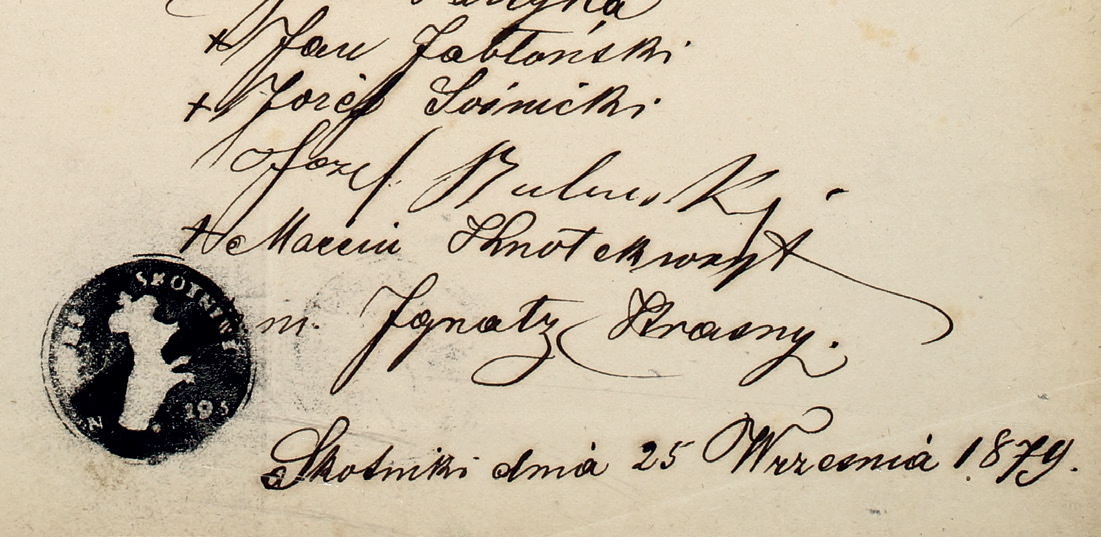 + Jan Jabłoński
+ Józéf Sośnicki
Józef
+ Marcin Knot
m. Ignatz Krasny.
SKOTNIKI
N 193
Skotniki dnia 25 Wrzesnia 1879.